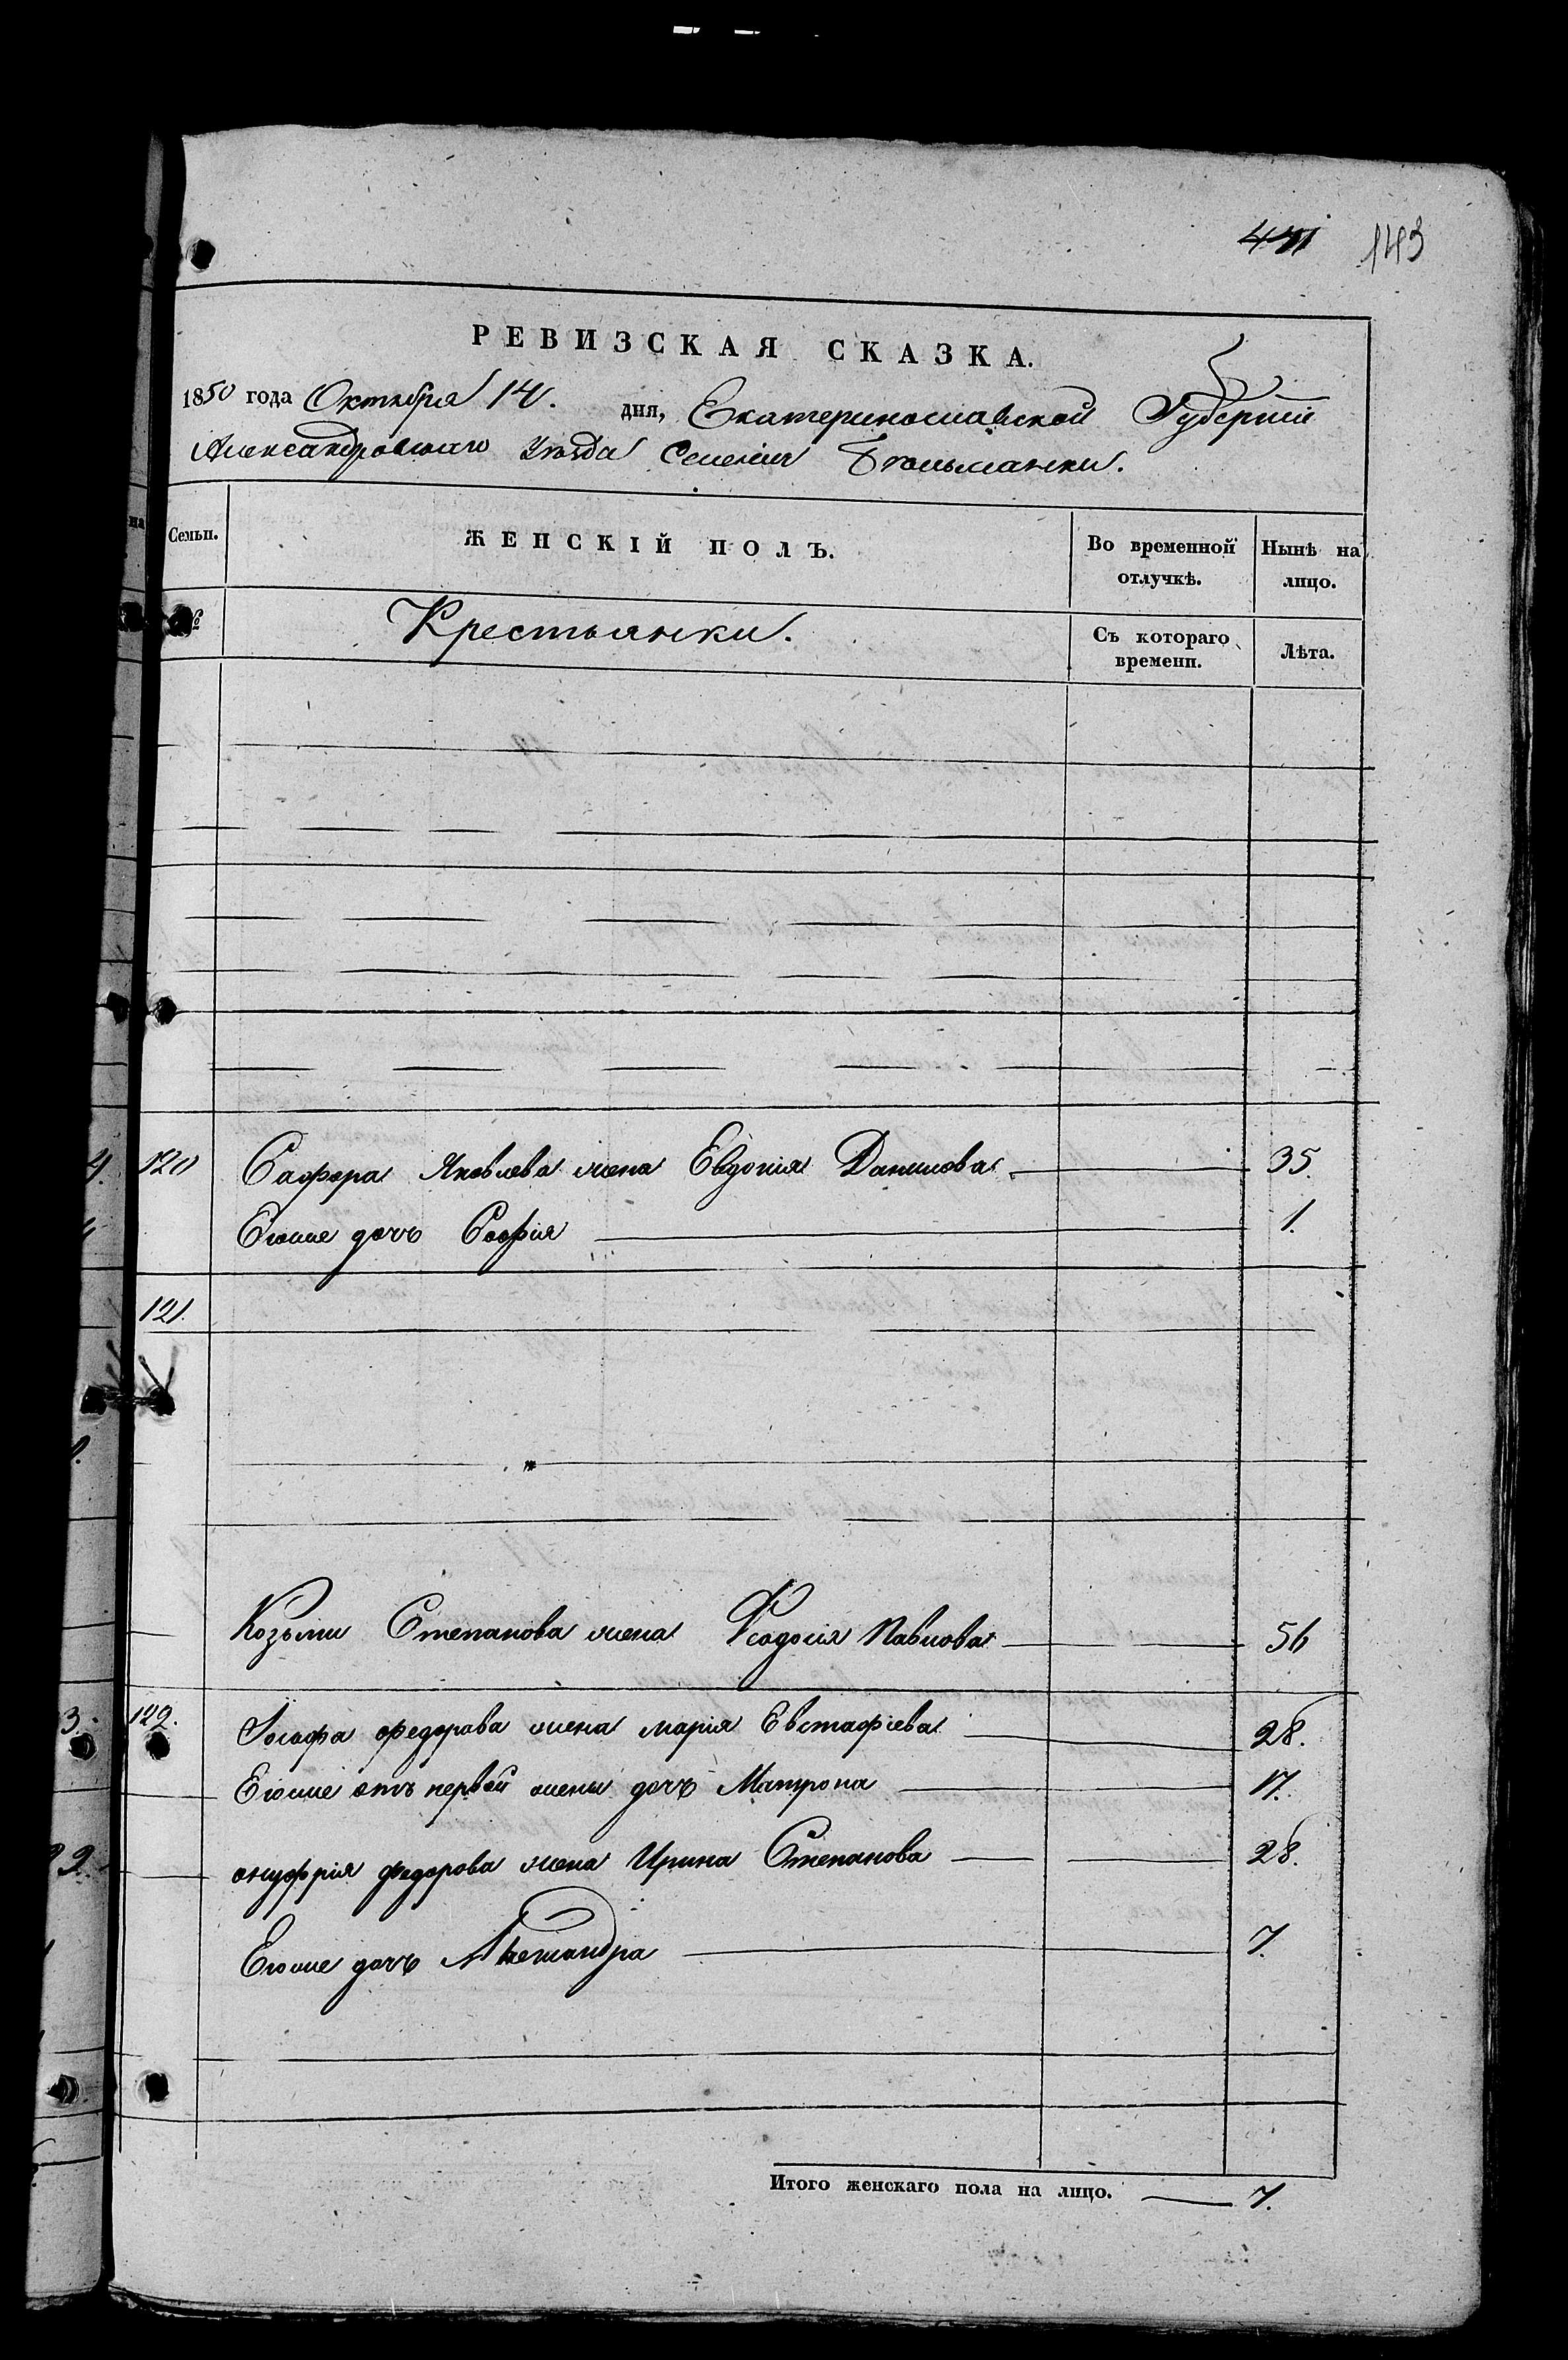 143
РЕВИЗСКАЯ СКАЗКА.
1850 года Октября 14. дня, Екатеринославской Губерніи
Александровскаго Уѣзда Селенія Бѣльманки.
Семьи.
ЖЕНСКІЙ ПОЛЪ.
Во временной отлучкѣ.
Нынѣ на лицо.
№
Крестьянки.
Съ котораго времени.
Лѣта.
120 Сафора Яковлева жена Евдокія Данилова 35.
Егоже дочь Софія 1.
121.
Козьми Степанова жена Ѳеодосія Павлова 56
122. Іосафа Федорова жена Марія Евстафіева 28.
Егоже отъ первой жены дочь Матрона 17.
Онуфрія Федорова жена Ирина Степанова 28.
Егоже дочь Александра 7.
Итого женскаго пола на лицо. 7.